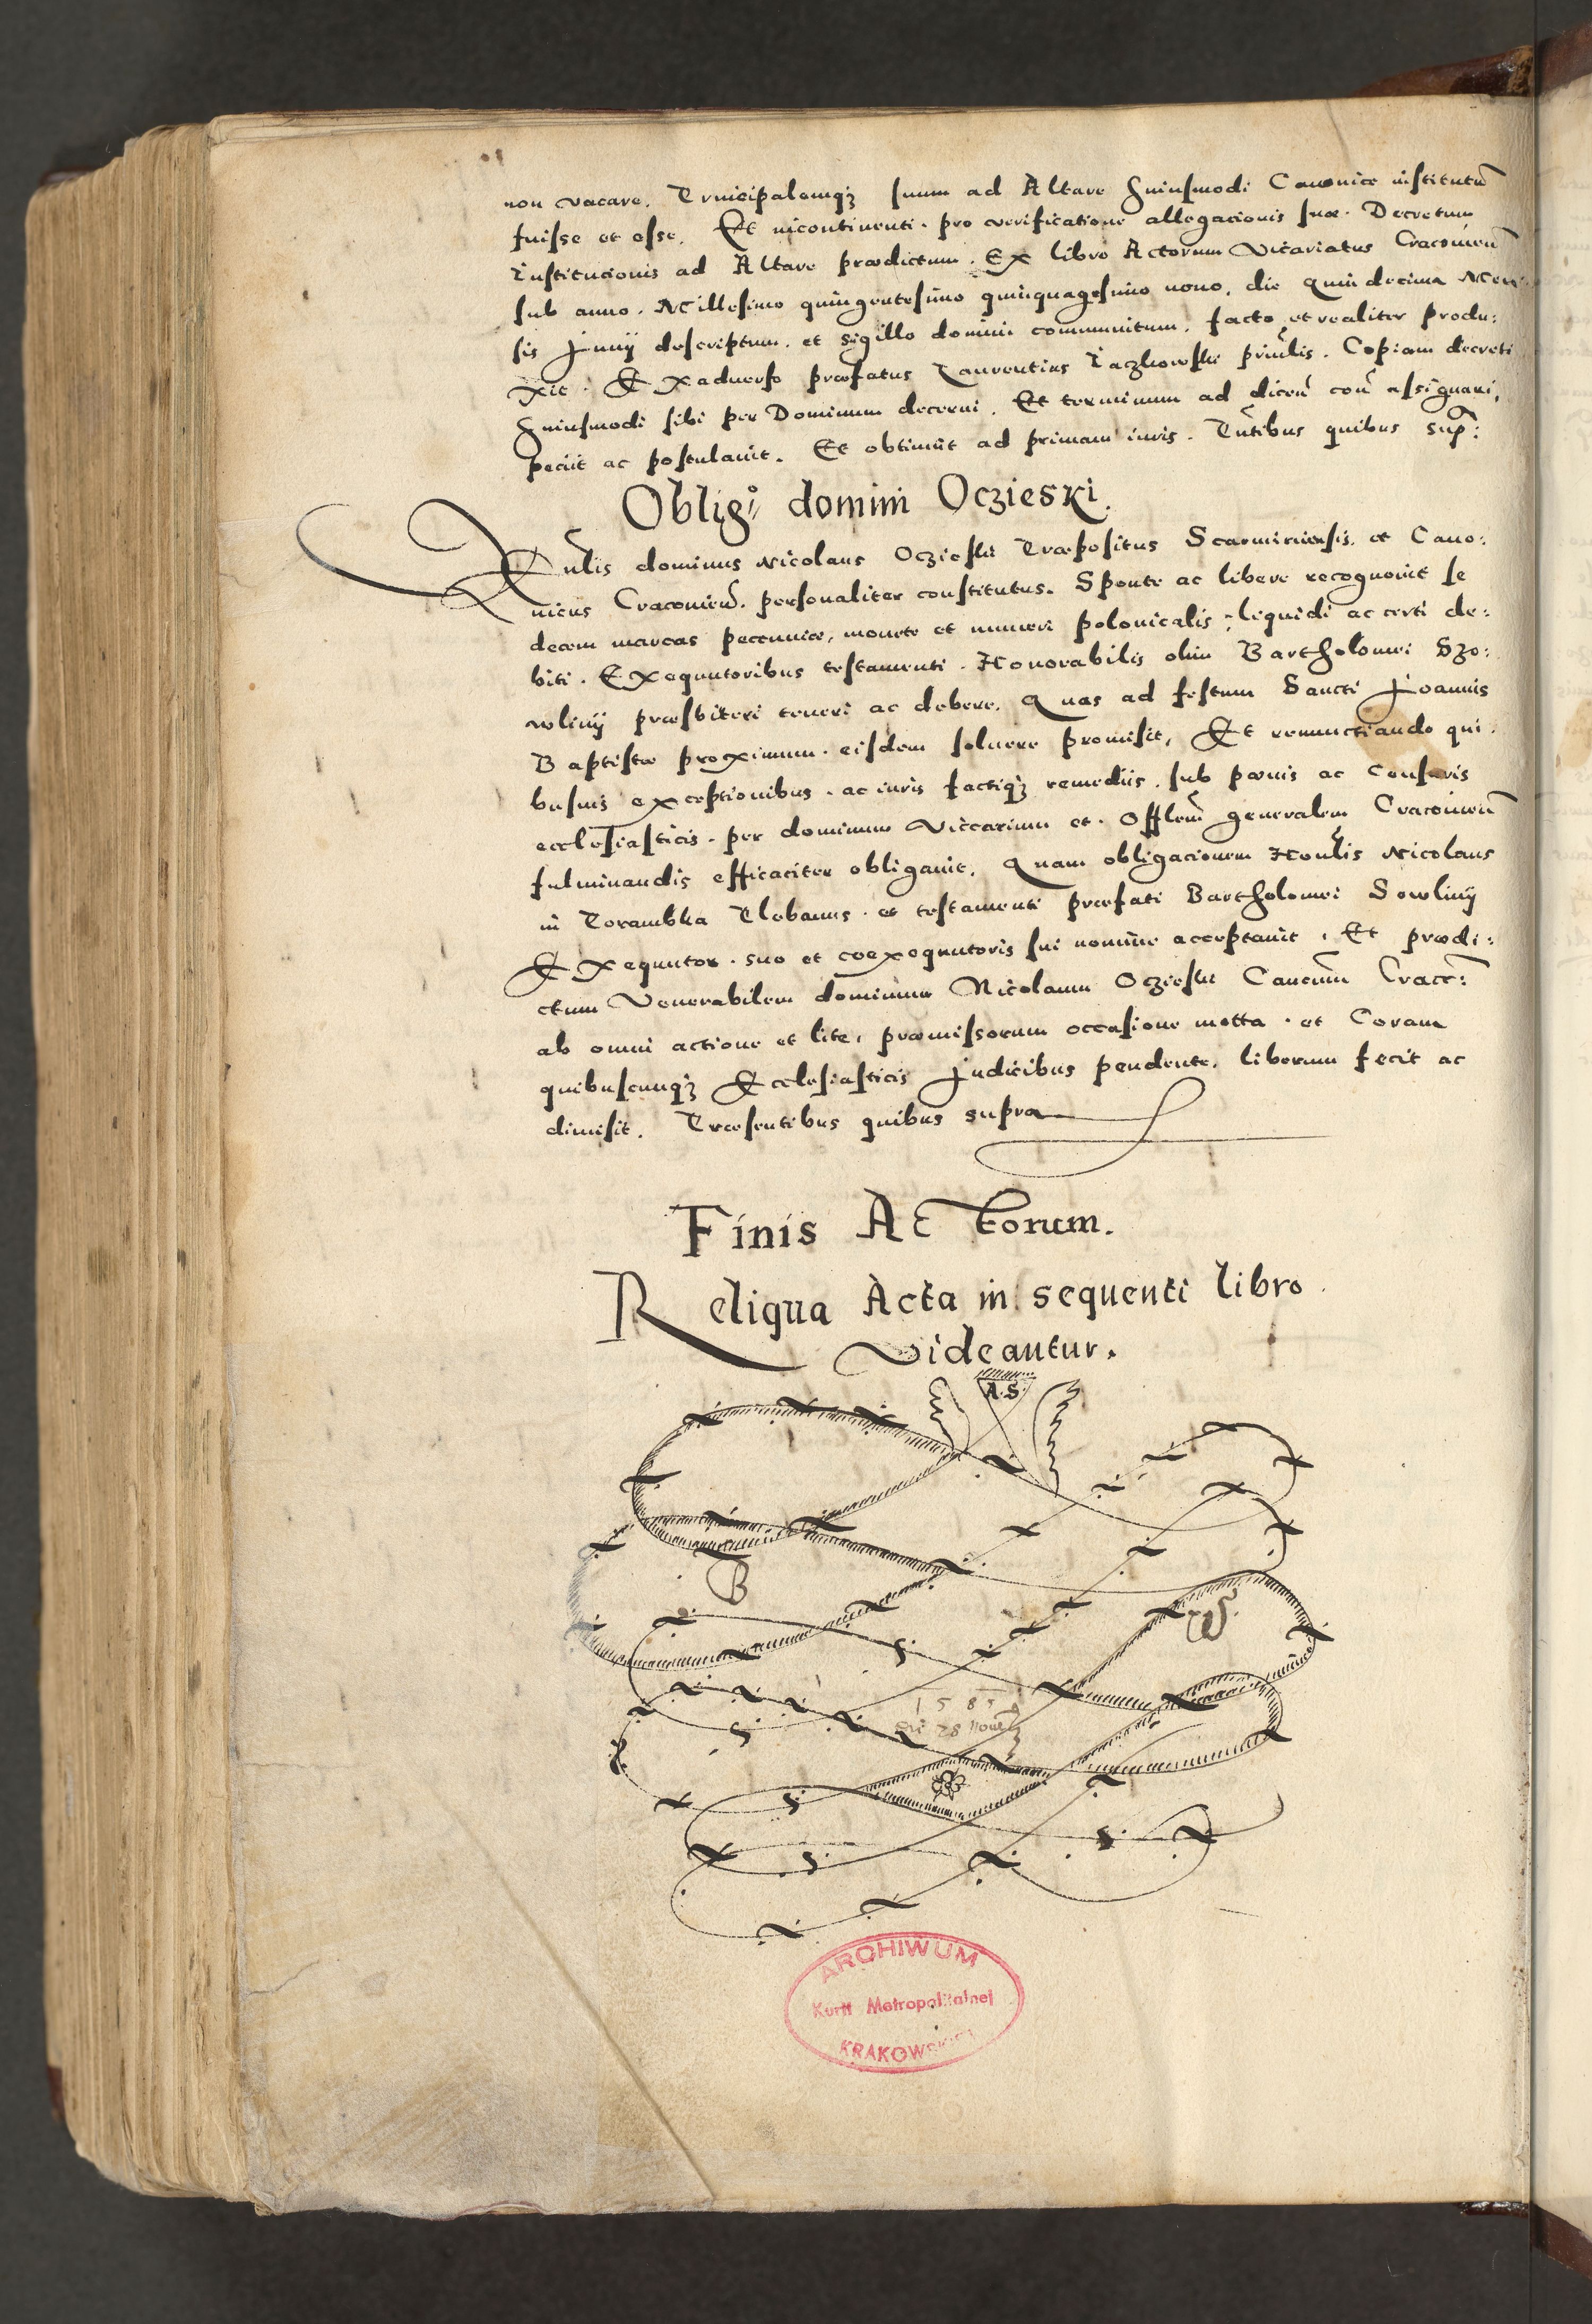 non vacare. Principalemqȝ suum ad Altare huiusmodi Canonice institutũ
fuisse et esse. Et incontinenti. pro verificatione allegacionis suæ. Decretum
Institucionis ad Altare prædictum. Ex libro Actorum Vicariatus Cracoviẽn
sub anno. Millesimo quingentesimo quinquagesimo nono, die quindecima Men:
sis Junij descriptum. et sigillo domini communitum. facto et realiter produ:
xit. Ex adverso præfatus Laurentius principalis. Copiam decreti
huiusmodi sibi per Dominum decerni. Et terminum ad dicenͫ conͣ assignari,
peciit ac postulavit. Et obtinuit ad primam iuris. Pñtibus quibus sup̃:
Obligͦ domini Oczieski.
Vñlis dominus Nicolaus Oczieski Præpositus Scarmiriensis. et Cano:
nicus Cracovieñ. personaliter constitutus. Sponte ac libere recognovit se
decem marcas pecuniæ, monete et numeri polonicalis, liquidi ac certi de:
biti. Exequutoribus testamenti. Honorabilis olim Bartholomei Szo:
wliny præsbiteri teneri ac debere. Quas ad festum Sancti Joannis
Baptistæ proximum. eisdem solvere promisit, Et renunctiando qui:
busuis exceptionibus. ac iuris factiqȝ remediis. sub pœnis ac Censuris
ecclesiasticis. per dominum Viccarium et. Offlem̃ generalem Cracovieñ
fulminandis efficaciter obligavit. Quam obligacionem Honlis Nicolaus
in Porambka Plebanus. et testamenti præfati Bartholomei Sowliny
Exequutor. suo et coexequutoris sui nomine acceptavit. Et prædi:
ctum Venerabilem dominum Nicolaum Oczieski Cancum̃ Cracc̃:
ab omni actione et lite, præmissorum occasione motta. et Coram
quibuscunqȝ Ecclesiasticis Judicibus pendente, liberum fecit ac
dimisit. Præsentibus quibus supra
Finis Actorum.
Reliqua Acta in sequenti libro
Videantur.
A. S.
B
1585
die 28 Nove
ARCHIWUM
Kurii Metropolitalnej
KRAKOWSKIEJ